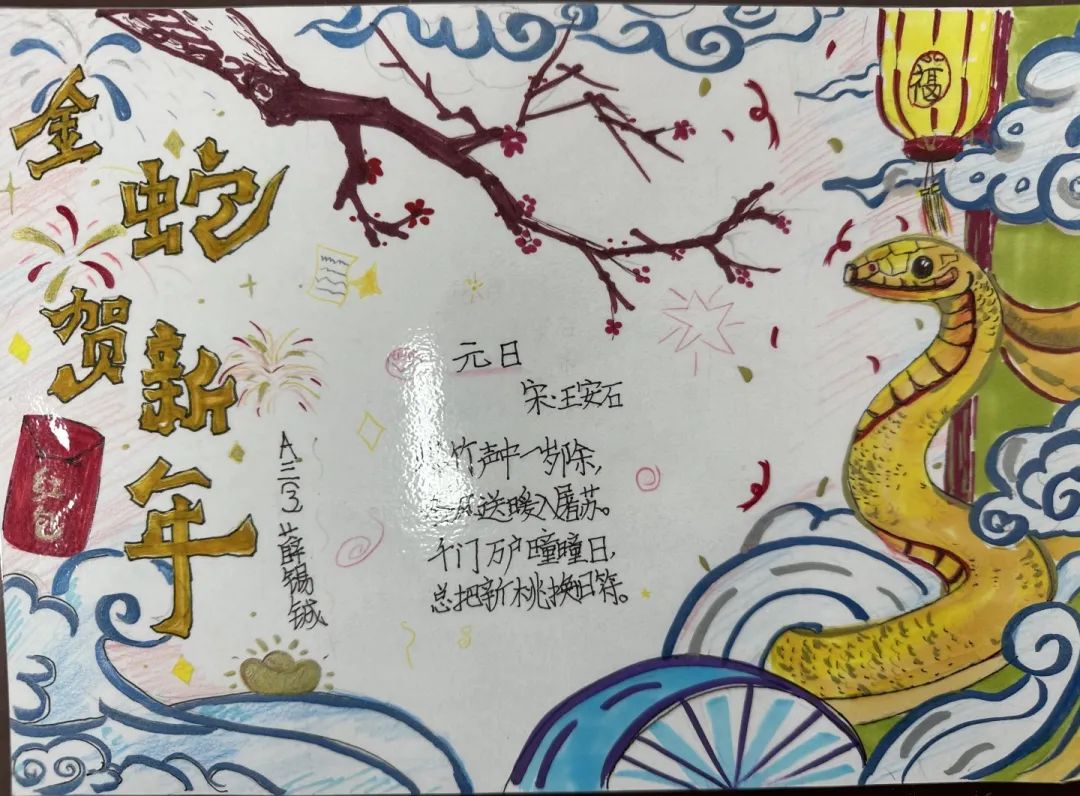 金蛇贺新年
福
元日
宋·王安石
竹声中一岁除，
送暖入屠苏。
千门万户瞳瞳日，
总把新桃换旧符。
A三③薛锡铖
红包